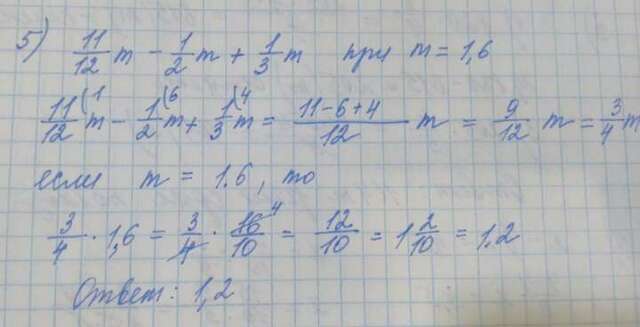 5) 11/12 m - 1/2 m + 1/3 m при m = 1,6
11/12 (1 m - 1/2 (6 m + 1/3 (4 m = (11-6+4)/12 m = 9/12 m = 3/4 m
если m = 1.6, то
3/4 · 1,6 = 3/4 · 16/10 4 = 12/10 = 1 2/10 = 1.2
Ответ: 1,2